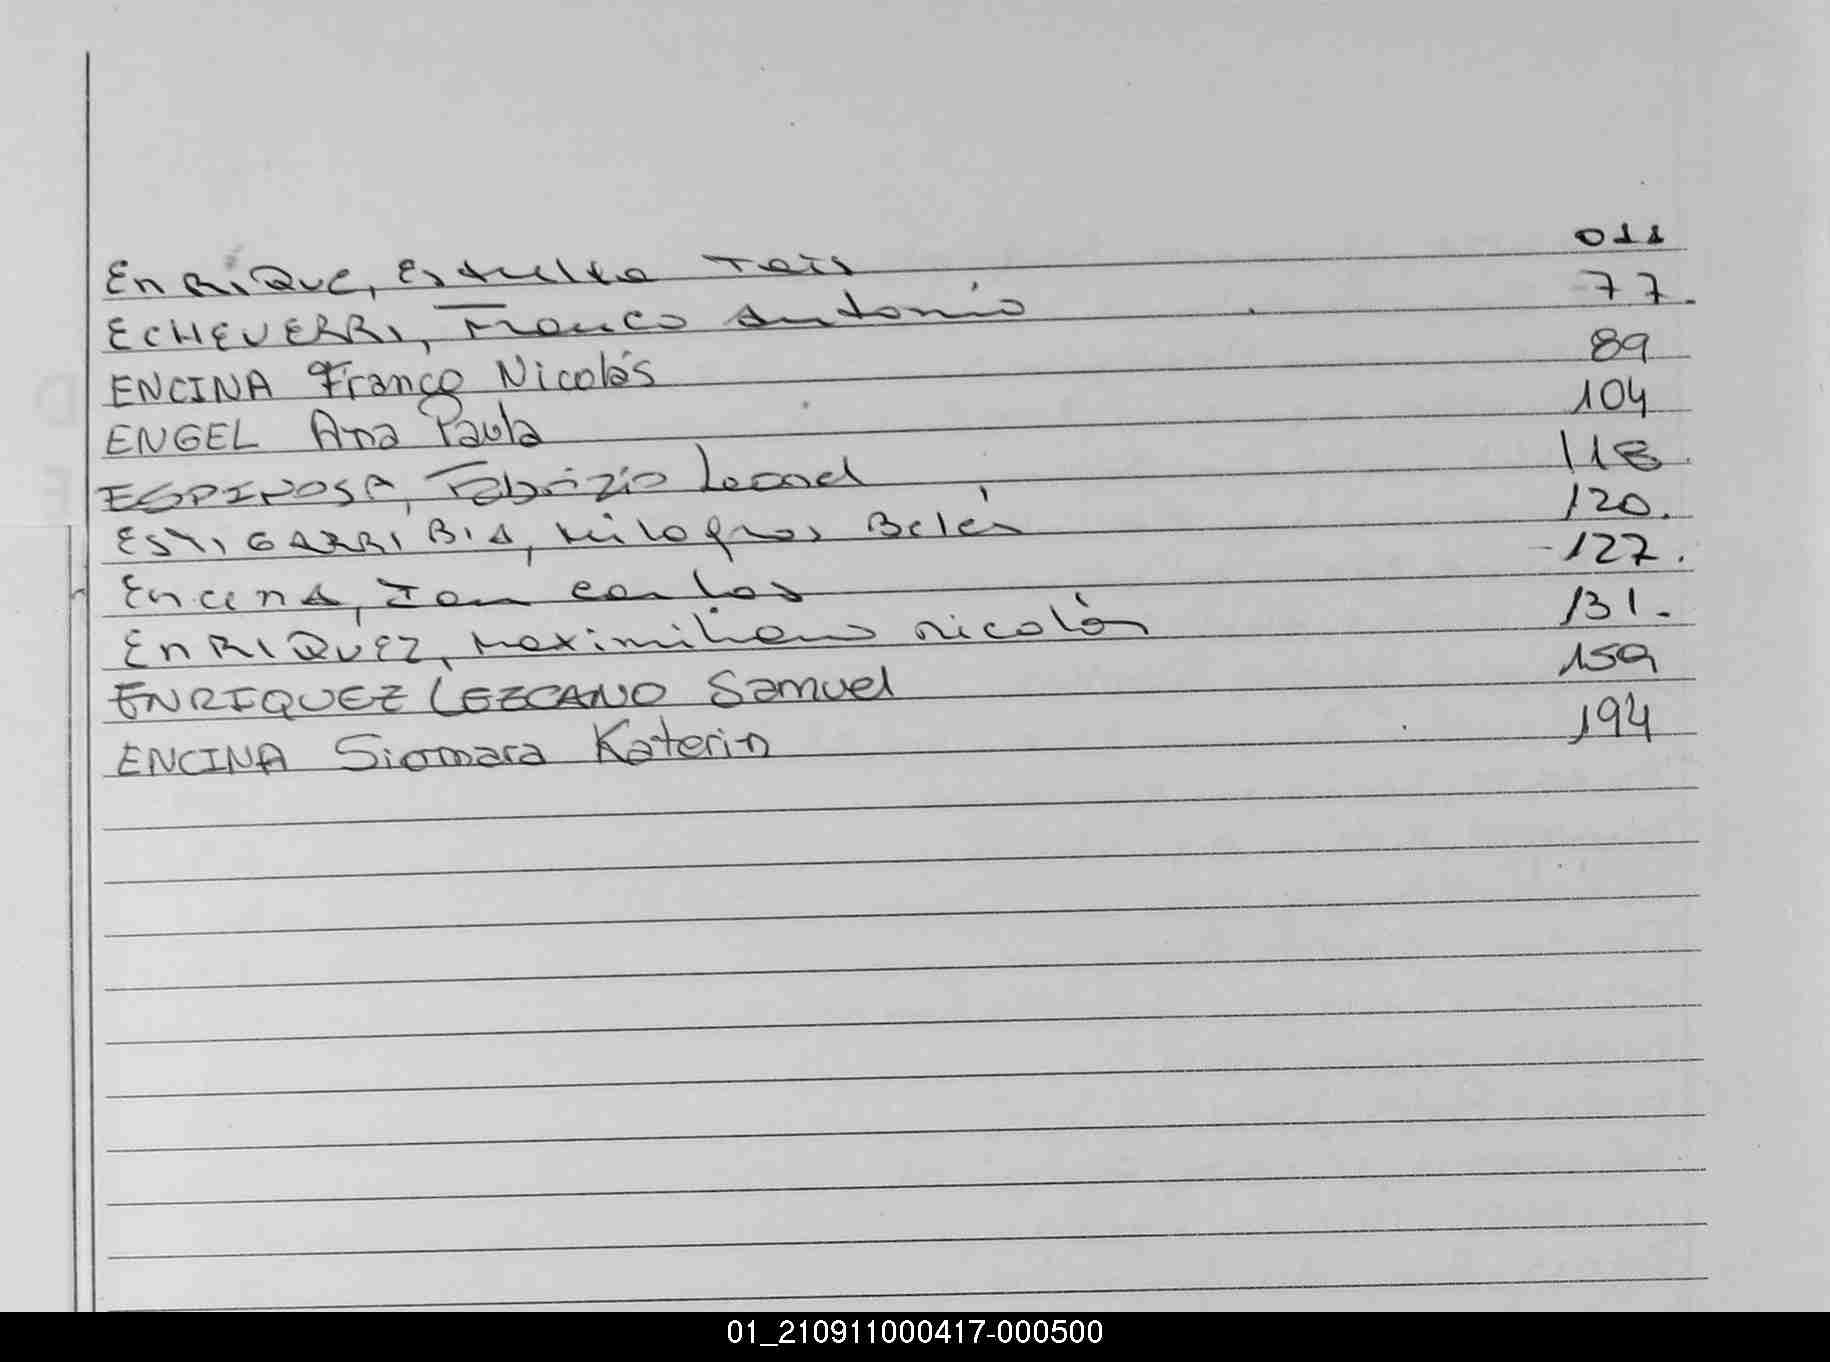 Enrique, Estrella Tais 011
ECHEVERRI, Franco Antonio 77.
ENCINA Franco Nicolás 89
ENGEL Ana Paula 104
ESPINOSA, Fabrizio Leonel 118.
ESTIGARRIBIA, Milagros Belén 120.
Encina, Ian Carlos -127.
EnRIQUEZ, Maximiliano nicolás 131.
ENRIQUEZ LEZCANO Samuel 159
ENCINA Siomara Katerin 194
01_210911000417-000500